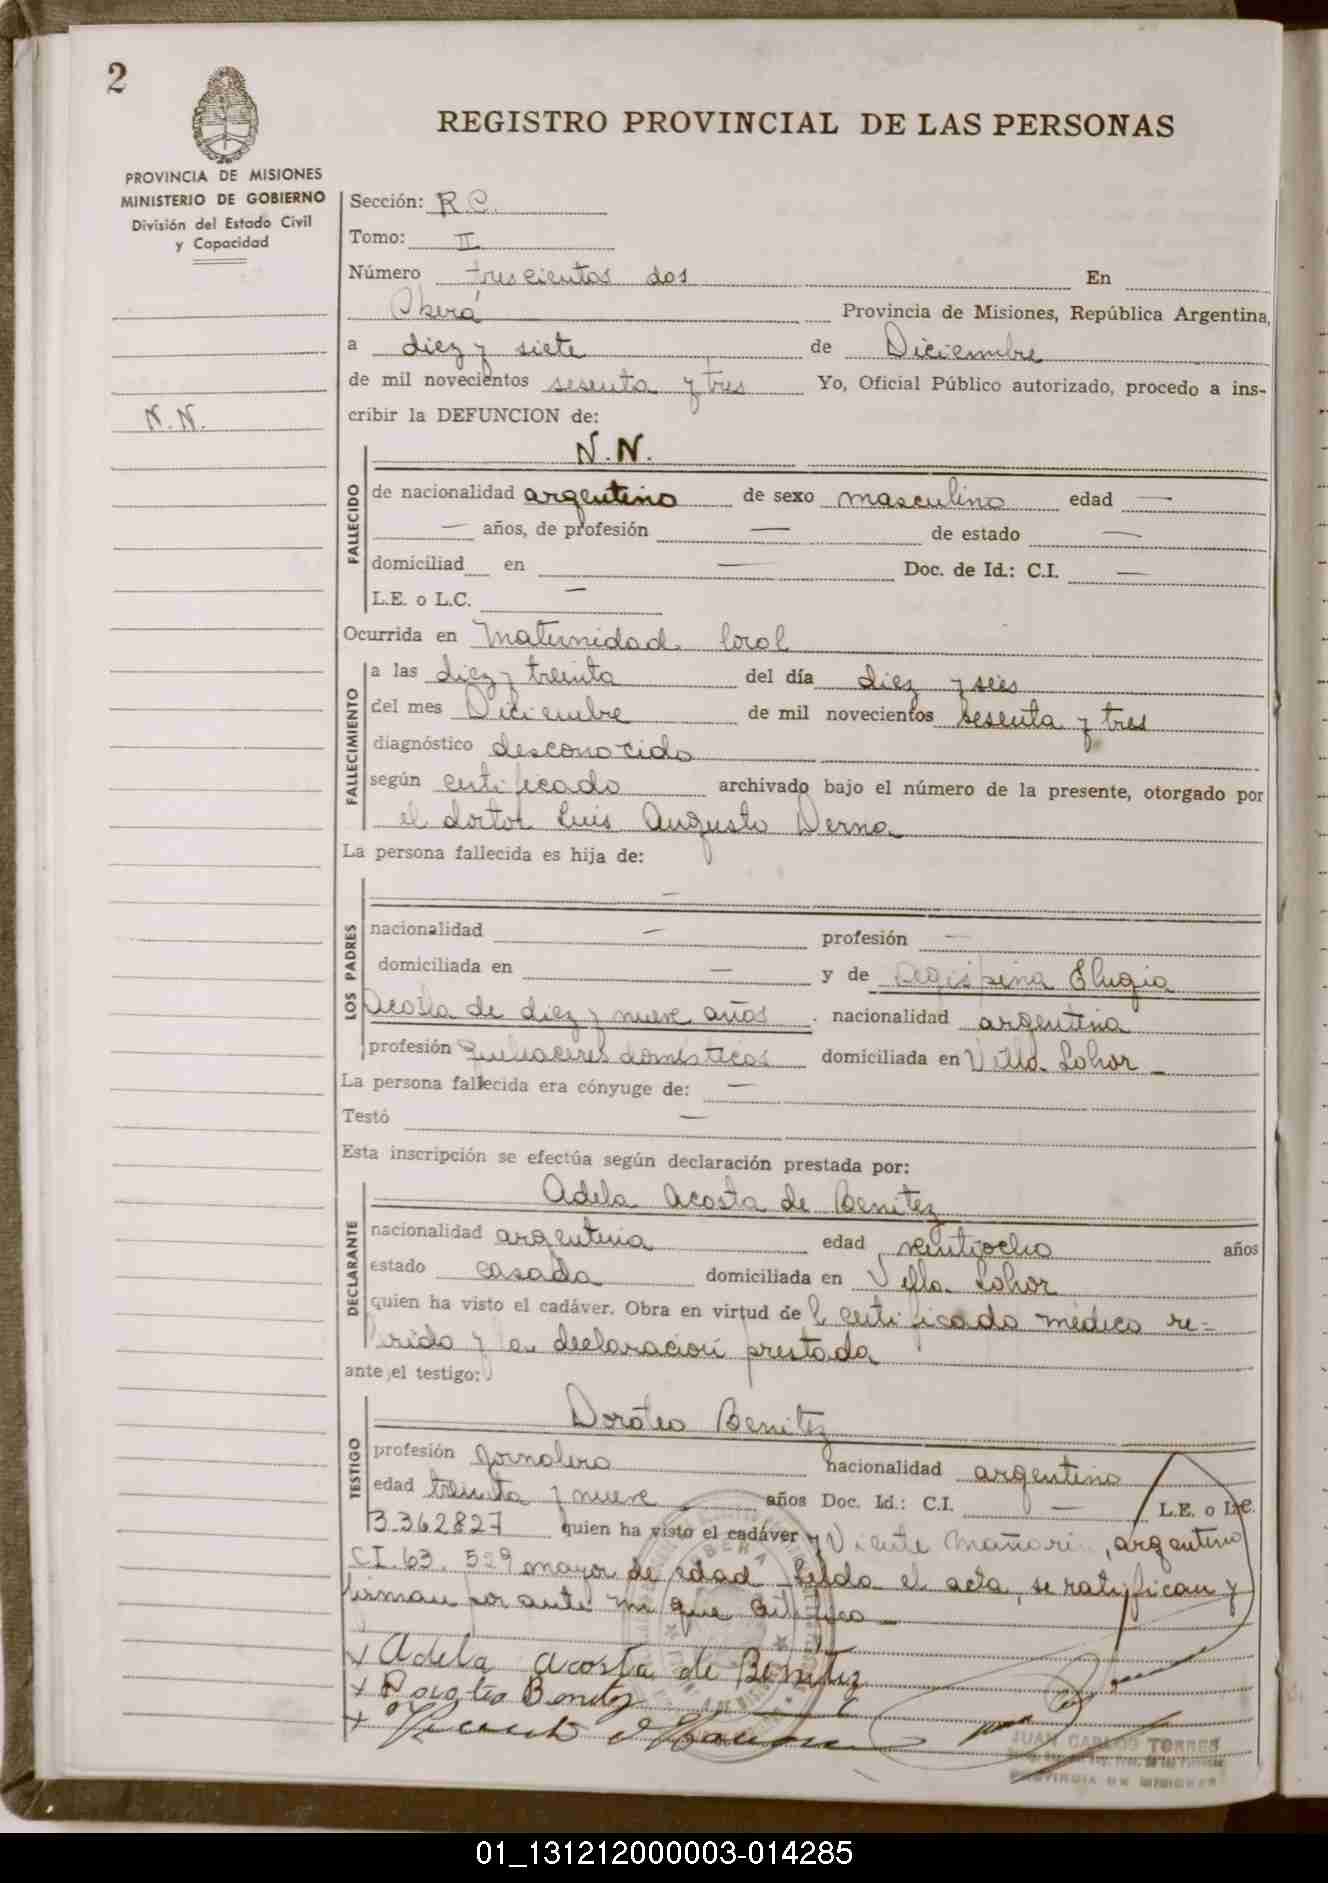 2
REGISTRO PROVINCIAL DE LAS PERSONAS
PROVINCIA DE MISIONES
MINISTERIO DE GOBIERNO
División del Estado Civil
y Capacidad
Sección: R.C.
Tomo: II
Número trescientos dos En
Oberá Provincia de Misiones, República Argentina,
a diez y siete de Diciembre
de mil novecientos sesenta y tres Yo, Oficial Público autorizado, procedo a ins-
cribir la DEFUNCION de:
N.N.
N.N.
FALLECIDO
de nacionalidad argentino de sexo masculino edad —
— años, de profesión — de estado —
domiciliad en — Doc. de Id.: C.I. —
L.E. o L.C. —
Ocurrida en Maternidad local
FALLECIMIENTO
a las diez y treinta del día diez y seis
del mes Diciembre de mil novecientos sesenta y tres
diagnóstico desconocido
según certificado archivado bajo el número de la presente, otorgado por
el doctor Luis Augusto Derna
La persona fallecida es hija de:
LOS PADRES
—
nacionalidad — profesión —
domiciliada en — y de Elugia
Acosta de diez y nueve años . nacionalidad argentina
profesión quehaceres domésticos domiciliada en Villa Lohor —
La persona fallecida era cónyuge de: —
Testó —
Esta inscripción se efectúa según declaración prestada por:
DECLARANTE
Adela Acosta de Benitez
nacionalidad argentina edad veintiocho años
estado casada domiciliada en Villa Lohor
quien ha visto el cadáver. Obra en virtud de l certificado médico re-
ferido y la declaración prestada
ante el testigo:
TESTIGO
Doroteo Benitez
profesión Jornalero nacionalidad argentino
edad treinta y nueve años Doc. Id.: C.I. — L.E. o L.C.
3.362827 quien ha visto el cadáver y Vicente , argentino
CI. 63. 529 mayor de edad. Leída el acta, se ratifican y
firman por ante mi que certifico —
x Adela acosta de Benitez
x Doroteo Benitez
x Vicente
OBERA
JUAN CARLOS TORRES
PROVINCIA DE MISIONES
01_131212000003-014285